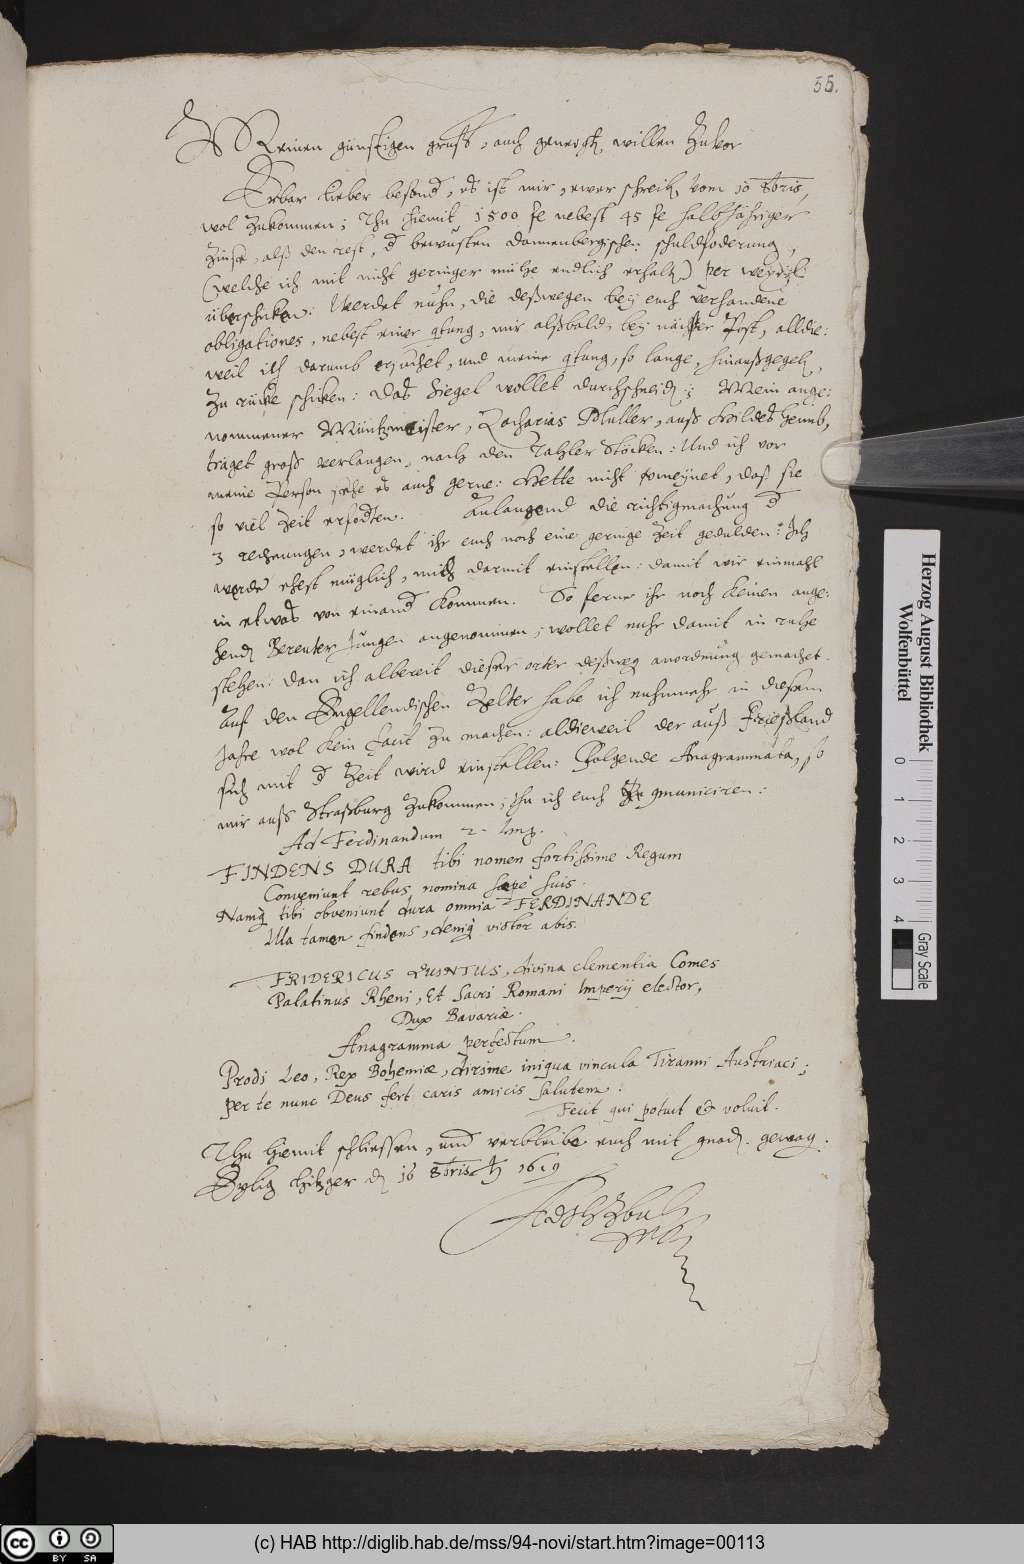 55.
Meinen günstigen gruß, auch geneigt. willen zuvor
Erbar lieber besond, es ist mir, ewer schreib. vom 10 8bris,
wol zukommen; Thu hiemit 1500 fl nebest 45 fl halbjähriger
Zinse, alß den rest, d bewusten Dannenbergischen schuldfoderung,
(welche ich mit nicht geringer mühe endlich erhalt.) per
überschicken: Werdet nuhn, die deßwegen bey euch verhandene
obligationes, nebest einer qtung, mir alßbald, bey nächster Post, alldie:
weil ich darumb ersuchet, und meine qtung, so lange, hinaußgegeb.,
zu rücke schicken: Das Siegel wollet durchschneid.; Mein ange:
nommener Müntzmeister, Zacharias Muller, auß Hildesheimb,
träget groß verlangen, nach den Tahler Stöcken: Und ich vor
meine Person sehe es auch gerne: Hette nicht vermeynet, daß sie
so viel Zeit erfodten. Anlangend die richtigmachung d
3 rechnungen, werdet ihr euch noch eine geringe Zeit gedulden: Ich
werde ehest müglich, mich darmit einstellen: damit wir einmahl
in etwas von einand kommen. So ferne ihr noch keinen ange:
hend. Bereuter Jungen angenommen; wollet nuhr damit in ruhe
stehen: dan ich albereit dieser orter deßweg anordnung gemachet.
Auf den Engellendischen Zelter habe ich nuhnmehr in diesem
Jahre wol kein facit zu machen: aldieweil der auß Frießland
sich mit d Zeit wird einstellen: Folgende Anagrammata, so
mir auß Straßburg zukommen; thu ich euch communiciren:
Ad Ferdinandum 2. Imp.
FINDENS DURA tibi nomen fortissime Regum
Conveniunt rebus nomina saepè suis.
Namq tibi obveniunt dura omnia FERDINANDE
Illa tamen findens, deniq victor abis.
FRIDERICUS QUINTUS, divina clementia Comes
Palatinus Rheni, Et Sacri Romani Imperij elector,
Dux Bavariæ.
Anagramma perfectum.
Prodi Leo, Rex Bohemiæ, dirime iniqua vincula Tiranni Austriaci;
per te nunc Deus fert caris amicis salutem.
Fecit qui potuit & voluit.
Thu hiemit schliessen, und verbleibe euch mit gnad. gewog.
Eylig Hitzger d. 16 8bris 1619
Herzog August Bibliothek
Wolfenbüttel
0 1 2 3 4
Gray Scale
BY SA
(c) HAB http://diglib.hab.de/mss/94-novi/start.htm?image=00113